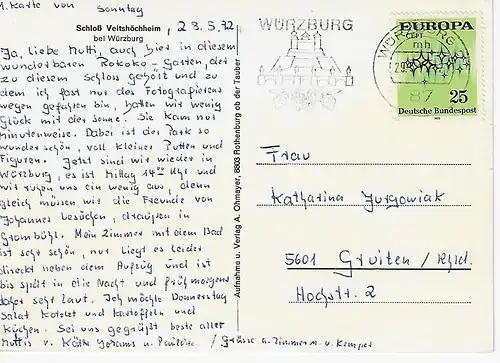 1. Karte von Sonntag
Schloß Veitshöchheim
bei Würzburg
28.5.72
Ja, liebe Mutti, auch hier in diesem
wunderbaren Rokoko-Garten, der
zu diesem Schloss gehört und zu
dem ich fast nur des Fotografierens
wegen gefahren bin, hatten wir wenig
Glück mit der Sonne. Sie kam nur
minutenweise. Dabei ist der Park so
wunderschön, voll kleiner Putten und
Figuren. Jetzt sind wir wieder in
Würzburg, es ist Mittag 14⁰⁰ Uhr und
wir ruhen uns ein wenig aus, denn
gleich müssen wir die Freunde von
Johannes besuchen, draußen in
Grombühl. Mein Zimmer mit dem Bad
ist sehr schön, nur liegt es leider
direkt neben dem Aufzug und ist
bis spät in die Nacht und frühmorgens
daher sehr laut. Ich möchte Donnerstag
Salat Kotelet und Kartoffeln und
Kuchen. Sei uns gegrüßt beste aller
Muttis v. Käthe Johannes u. / Grüsse a. Zimmer u. v.
Aufnahme u. Verlag A. Ohmayer, 8803 Rothenburg ob der Tauber
WÜRZBURG
WÜRZBURG
mh
29.
87
EUROPA
CEPT
25
Deutsche Bundespost
Frau
Katharina Jurgowiak
5601 Gruiten / Rhld.
Hochstr. 2